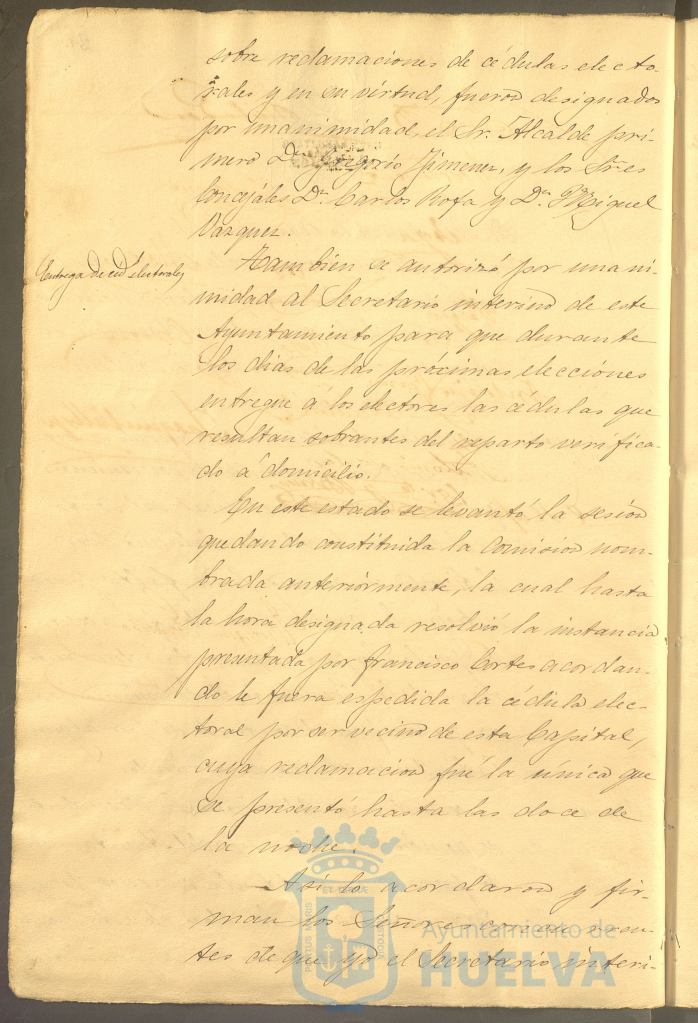 sobre reclamaciones de cédulas electo-
rales y en su virtud, fueron designados
por unanimidad, el Sr. Alcalde pri-
mero Dn Gregorio Jimenez, y los Sres
Concejales Dn Carlos Rofa y Dn Miguel
Vazquez.
Entrega de céds electorales
Tambien se autorizó por unani-
midad al Secretario interino de este
Ayuntamiento para que durante
los dias de las próximas elecciones
entregue á los electores las cédulas que
resultan sobrantes del reparto verifica-
do á domicilio.
En este estado se levantó la sesion
quedando constituida la Comision nom-
brada anteriormente, la cual hasta
la hora designada resolvió la instancia
presentada por Francisco Cortes acordan-
do le fuera espedida la cédula elec-
toral por ser vecino de esta Capital,
cuya reclamacion fué la única que
se presentó hasta las doce de
la noche.
Asi lo acordaron y fir-
man los Señores concurren-
tes de que yo el Secretario interi-
PORTUS MARIS ET TERRAE CUSTODIA
Ayuntamiento de
HUELVA